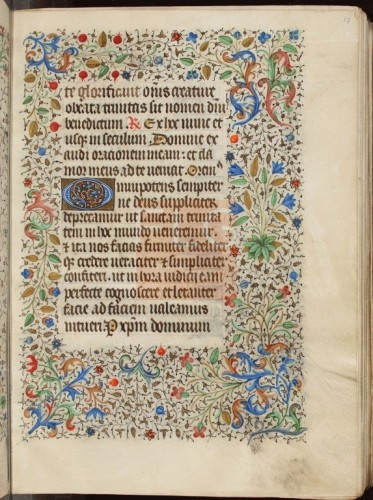 te glorificant om̄s creature
o beata trinitas sit nomen dn̄i
benedictum R Ex hoc nunc et
usq; in seculum Domine ex
audi orationem meam: et cla
mor meus ad te veniat. Orem̄
Omnipotens sempiter
ne deus suppliciter
deprecamur ut sanctam trinita
tem in hoc mundo veneremur
et ita nos facias firmiter fideliter
q; credere veraciter et simpliciter
confiteri. ut in hora iudicii eam
perfecte cognoscere et letanter
facie ad faciem valeamus
intueri. P xp̄m dominum